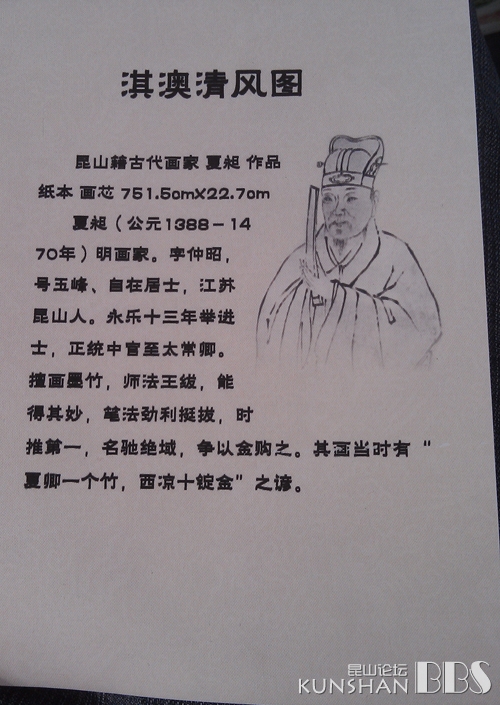 淇澳清风图
昆山籍古代画家 夏昶 作品
纸本 画芯 751.5cmX22.7cm
夏昶（公元1388－14
70年）明画家。字仲昭，
号玉峰、自在居士，江苏
昆山人。永乐十三年举进
士，正统中官至太常卿。
擅画墨竹，师法王绂，能
得其妙，笔法劲利挺拔，时
推第一，名驰绝域，争以金购之。其画当时有“
夏卿一个竹，西凉十锭金”之谚。
昆山论坛
KUNSHAN BBS